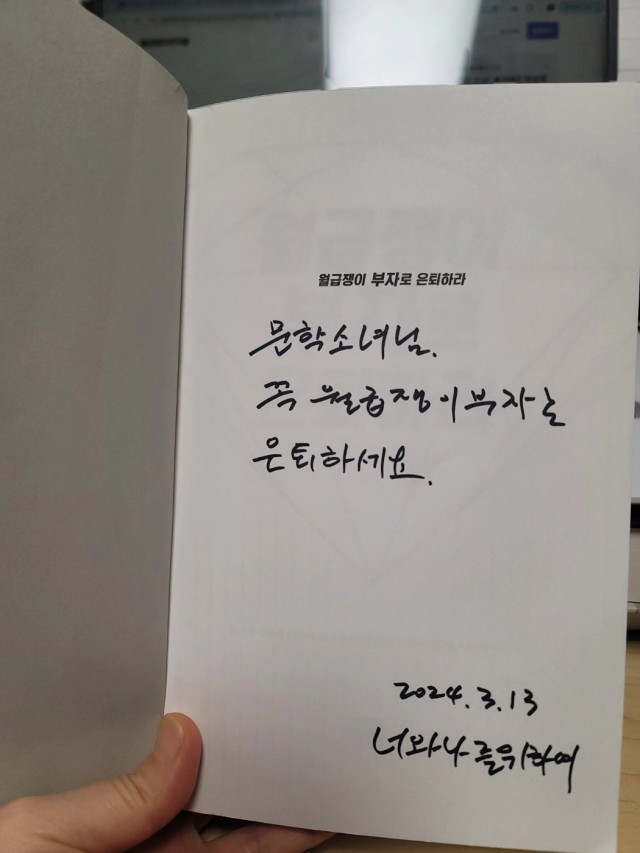 월급쟁이 부자로 은퇴하라
문학소녀님.
꼭 월급쟁이부자로
은퇴하세요.
2024.3.13
너와나를위하여